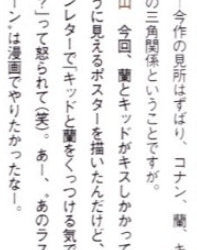 ―今作の見所はずばり、コナン、蘭、キ
の三角関係ということですが。
山　今回、蘭とキッドがキスしかかって
うに見えるポスターを描いたんだけど、
ンレターで「キッドと蘭をくっつける気で
？」って怒られて(笑)。あー、〝あのラス
ーン〟は漫画でやりたかったなー。